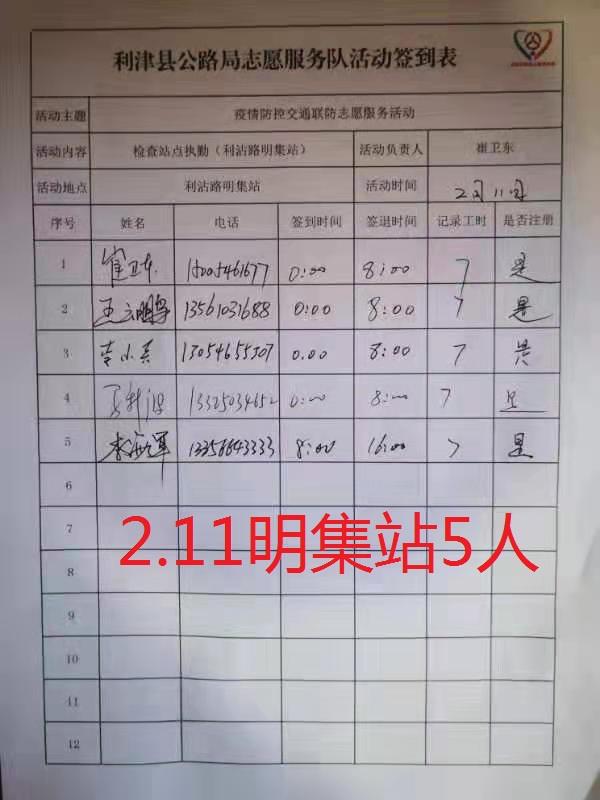 利津县公路局志愿服务队活动签到表
活动主题 疫情防控交通联防志愿服务活动
活动内容 检查站点执勤（利沾路明集站） 活动负责人 崔卫东
活动地点 利沾路明集站 活动时间 2月11日
序号 姓名 电话 签到时间 签退时间 记录工时 是否注册
1 崔卫东 15005461677 0:00 8:00 7 是
2 王云鹏 13561031688 0:00 8:00 7 是
3 李小美 13054655307 0:00 8:00 7 是
4 13325034652 0:00 8:00 7 是
5 李海军 13356643333 8:00 16:00 7 是
6
2.11明集站5人
7
8
9
10
11
12